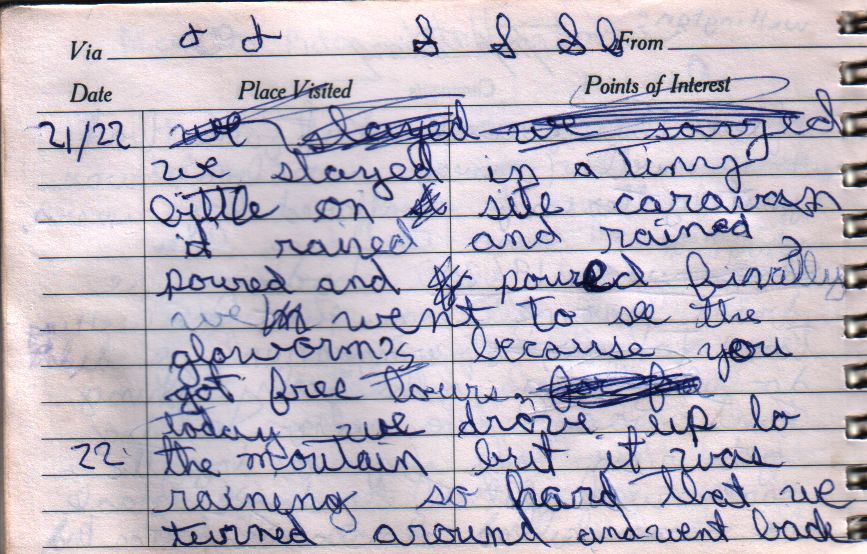 Via From
Date Place Visited Points of Interest
21/22 we stayed we stayed
we stayed in a tiny
little on site caravan
it rained and rained
poured and poured finally
we went to see the
gloworms because you
got free tours.
today we drove up to
22 the moutain but it was
raineng so hard that we
turned around and went back